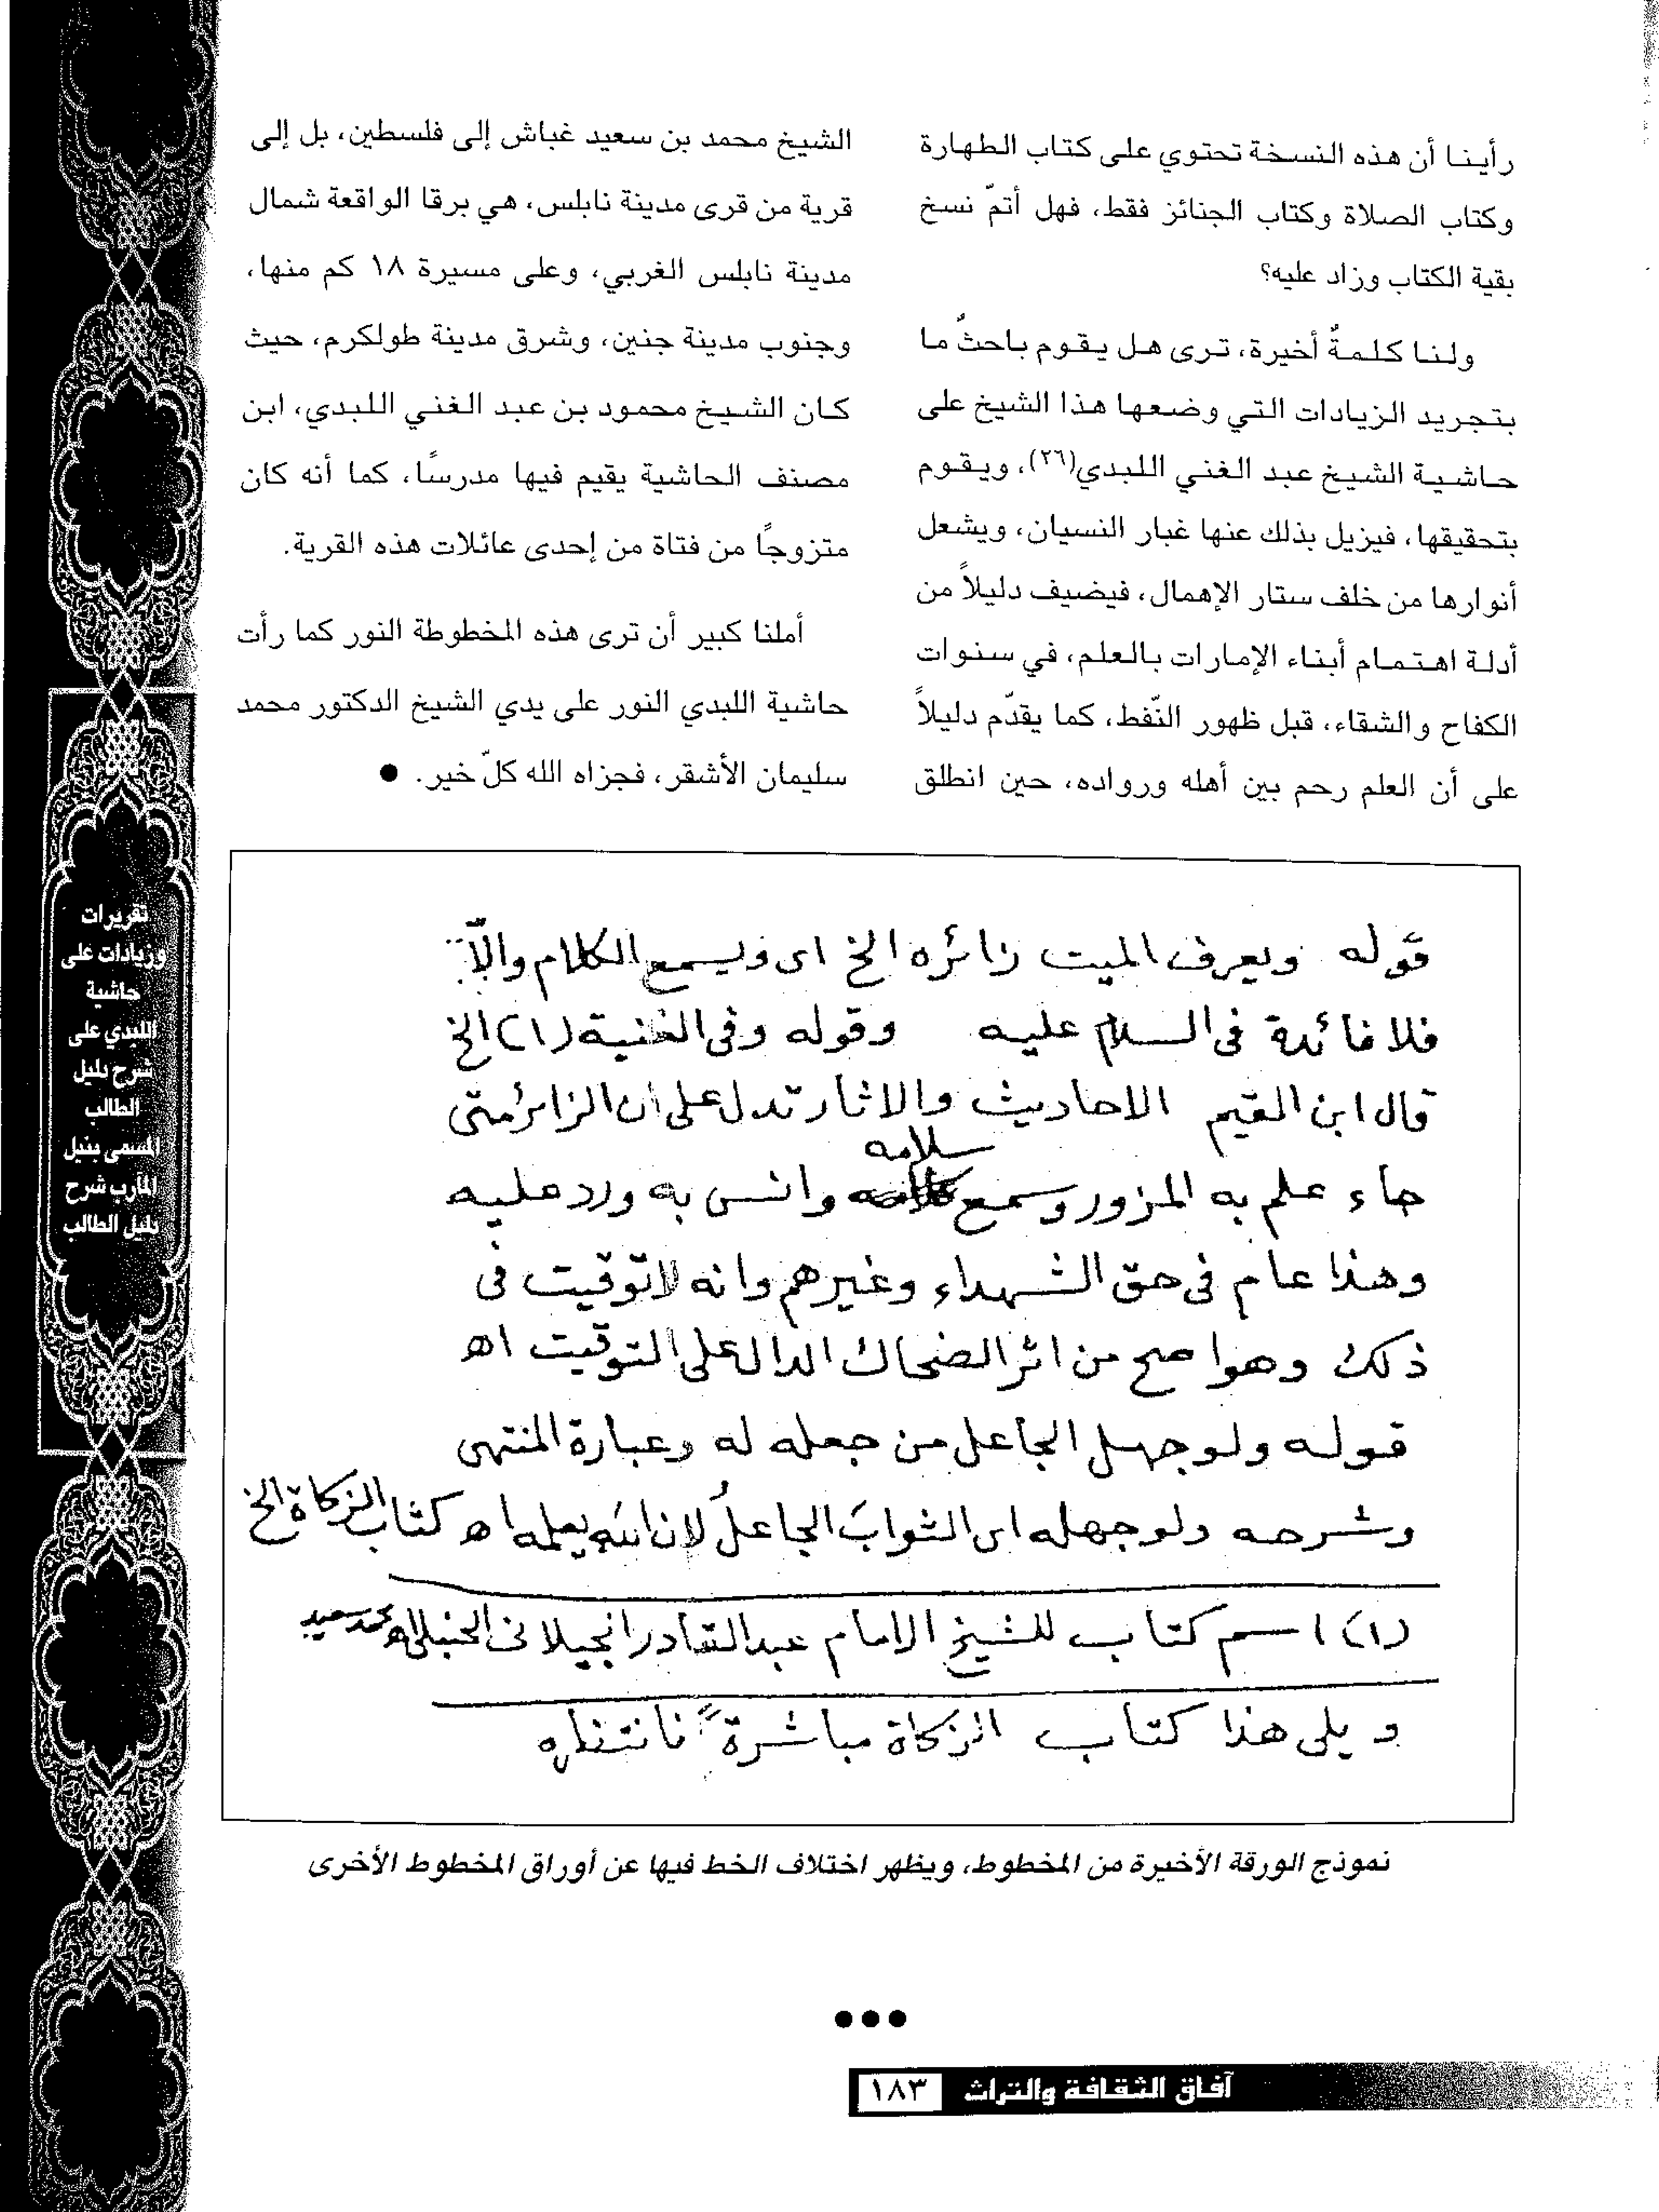 رأينا أن هذه النسخة تحتوي على كتاب الطهارة
وكتاب الصلاة وكتاب الجنائز فقط، فهل أتمّ نسخ
بقية الكتاب وزاد عليه؟
ولنا كلمةٌ أخيرة، ترى هل يقوم باحثٌ ما
بتجريد الزيادات التي وضعها هذا الشيخ على
حاشية الشيخ عبد الغني اللبدي(٢٦)، ويقوم
بتحقيقها، فيزيل بذلك عنها غبار النسيان، ويشعل
أنوارها من خلف ستار الإهمال، فيضيف دليلاً من
أدلة اهتمام أبناء الإمارات بالعلم، في سنوات
الكفاح والشقاء، قبل ظهور النّفط، كما يقدّم دليلاً
على أن العلم رحم بين أهله ورواده، حين انطلق
الشيخ محمد بن سعيد غباش إلى فلسطين، بل إلى
قرية من قرى مدينة نابلس، هي برقا الواقعة شمال
مدينة نابلس الغربي، وعلى مسيرة ١٨ كم منها،
وجنوب مدينة جنين، وشرق مدينة طولكرم، حيث
كان الشيخ محمود بن عبد الغني اللبدي، ابن
مصنف الحاشية يقيم فيها مدرسًا، كما أنه كان
متزوجاً من فتاة من إحدى عائلات هذه القرية.
أملنا كبير أن ترى هذه المخطوطة النور كما رأت
حاشية اللبدي النور على يدي الشيخ الدكتور محمد
سليمان الأشقر، فجزاه الله كلّ خير. ●
قوله ويعرف الميت زائره الخ اى ويسمع الكلام والّا
فلا فائدة فى السلام عليه وقوله وفى الغنية (١) الخ
قال ابن القيم الاحاديث والاثار تدل على ان الزائر متى
جاء علم به المزور وسمع سلامه وانس به ورد عليه
وهذا عام فى حق الشهداء وغيرهم وانه لا توقيت فى
ذلك وهو اصح من اثر الضحاك الدال على التوقيت اه
قوله ولو جهل الجاعل من جعله له وعبارة المنتهى
وشرحه ولو جهله اى الثوابَ الجاعلُ لان الله يعلمه اه كتاب الزكاة الخ
(١) اسم كتاب للشيخ الامام عبد القادر الجيلانى الحنبلى اه محمد سعيد
ويلى هذا كتاب الزكاة مباشرةً فانتظره
نموذج الورقة الأخيرة من المخطوط، ويظهر اختلاف الخط فيها عن أوراق المخطوط الأخرى
تقريرات
وزيادات على
حاشية
اللبدي على
شرح دليل
الطالب
المسمى بنيل
المآرب شرح
دليل الطالب
آفاق الثقافة والتراث ١٨٣